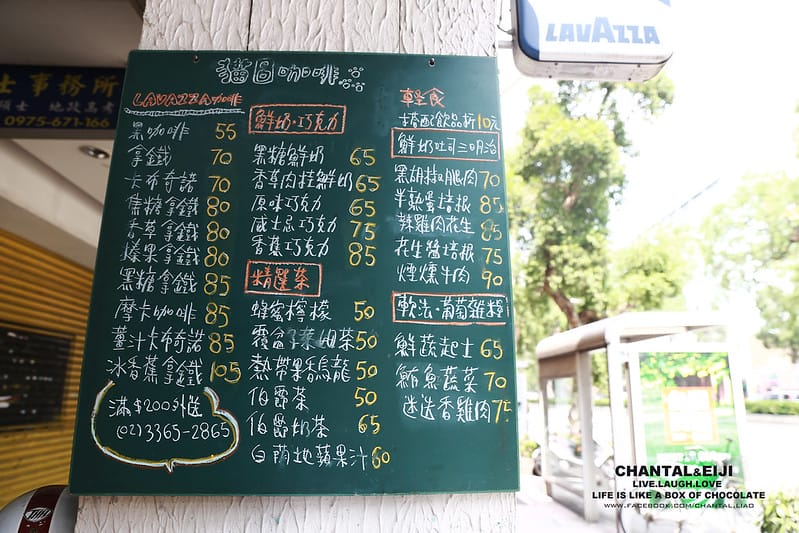 LAVAZZA
士事務所
0975-671-166
貓日咖啡
LAVAZZA咖啡
黑咖啡 55
拿鐵 70
卡布奇諾 70
焦糖拿鐵 80
香草拿鐵 80
榛果拿鐵 80
黑糖拿鐵 85
摩卡咖啡 85
薑汁卡布奇諾 85
冰香蕉拿鐵 105
滿$200外送
(02)3365-2865
鮮奶·巧克力
黑糖鮮奶 65
香草肉桂鮮奶 65
原味巧克力 65
威士忌巧克力 75
香蕉巧克力 85
精選茶
蜂蜜檸檬 50
覆盆子菓烟茶 50
熱帶果香烏龍 50
伯爵茶 50
伯爵奶茶 65
白蘭地蘋果汁 60
輕食
搭配飲品折10元
鮮奶吐司三明治
黑胡椒腿肉 70
半熟蛋培根 85
辣雞肉花生 85
花生醬培根 75
煙燻牛肉 90
軟法·葡萄雜糧
鮮蔬起士 65
鮪魚蔬菜 70
迷迭香雞肉 75
CHANTAL&EIJI
LIVE.LAUGH.LOVE
LIFE IS LIKE A BOX OF CHOCOLATE
WWW.FACEBOOK.COM/CHANTAL.LIAO